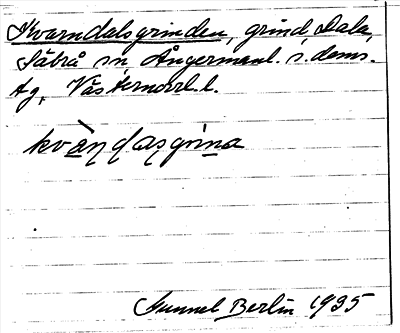 Kvarndalsgrinden, grind, Dala,
Säbrå sn, Ångermanl. s. doms.
tg, Västernorrl. l.
kvàṇḍasgrina
Gunnel Berlin 1935